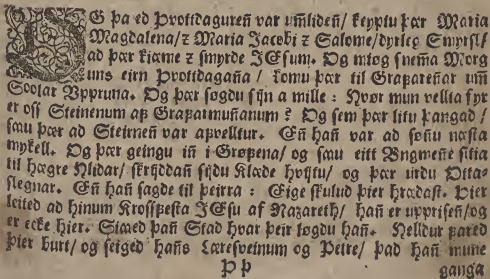 OG þa ed Þvottdaguren̄ var um̄liden̄/ keyptu þær Maria
Magdalena/ ꝛ Maria Jacobi ꝛ Salome/ dyrleg Smyrsl/
ad þær kiæme ꝛ smyrde JEsum. Og miøg snem̄a Morg
uns eirn Þvottdagan̄a/ komu þær til Grafaren̄ar um̄
Soolar Vppruna. Og þær søgdu sijn a mille : Hvør mun vellta fyr
er oss Steinenum af Grafarmun̄anum ? Og sem þær litu þangad /
sau þær ad Steirnen̄ var afvelltur. En̄ han̄ var ad son̄u næsta
mykell. Og þær geingu in̄ i Grøfena/ og sau eitt Vngmen̄e sitia
til hægre Hlidar/ skrijddan̄ sijdu Klæde hvijtu/ og þær urdu Otta-
slegnar. En̄ han̄ sagde til þeirra : Eige skulud þier hrædast. Þier
leited ad hinum Krossfesta JEsu af Nazareth/ han̄ er upprisen̄/ og
er ecke hier. Siaed þan̄ Stad hvar þeir løgdu han̄. Helldur fared
þier burt/ og seiged han̄s Læresveinum og Petre/ þad han̄ mune
Þ þ ganga